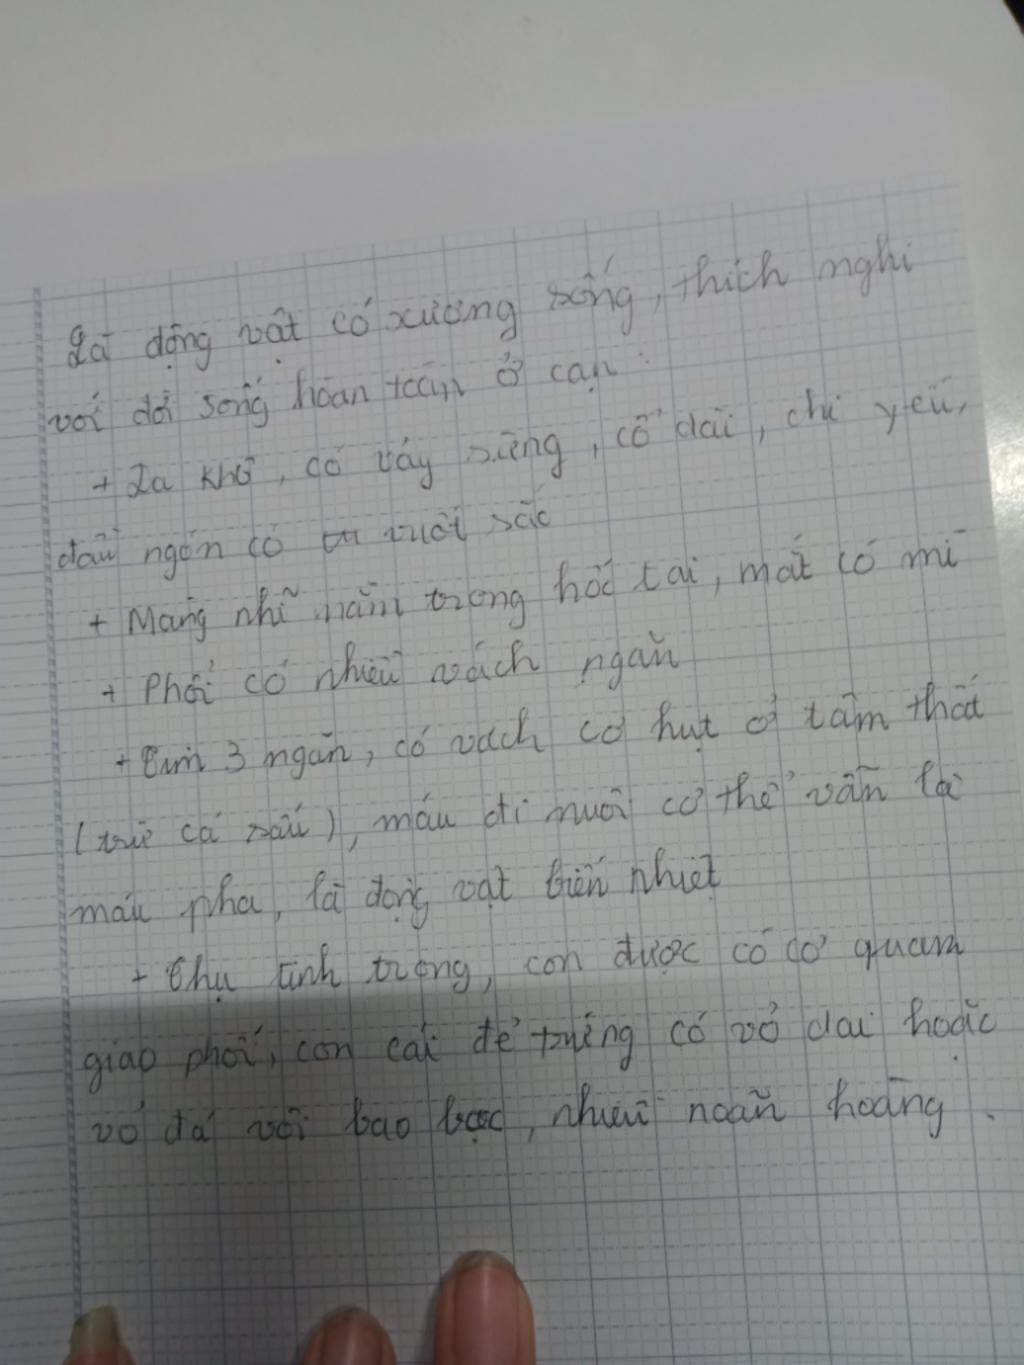 Là động vật có xương sống, thích nghi
với đời sống hoàn toàn ở cạn:
+ Da khô, có vảy sừng, cổ dài, chi yếu,
đầu ngón có vuốt sắc
+ Màng nhĩ nằm trong hốc tai, mắt có mi
+ Phổi có nhiều vách ngăn
+ Tim 3 ngăn, có vách cơ hụt ở tâm thất
(trừ cá sấu), máu đi nuôi cơ thể vẫn là
máu pha, là động vật biến nhiệt
+ Thụ tinh trong, con được có cơ quan
giao phối, con cái đẻ trứng có vỏ dai hoặc
vỏ đá vôi bao bọc, nhiều noãn hoàng.